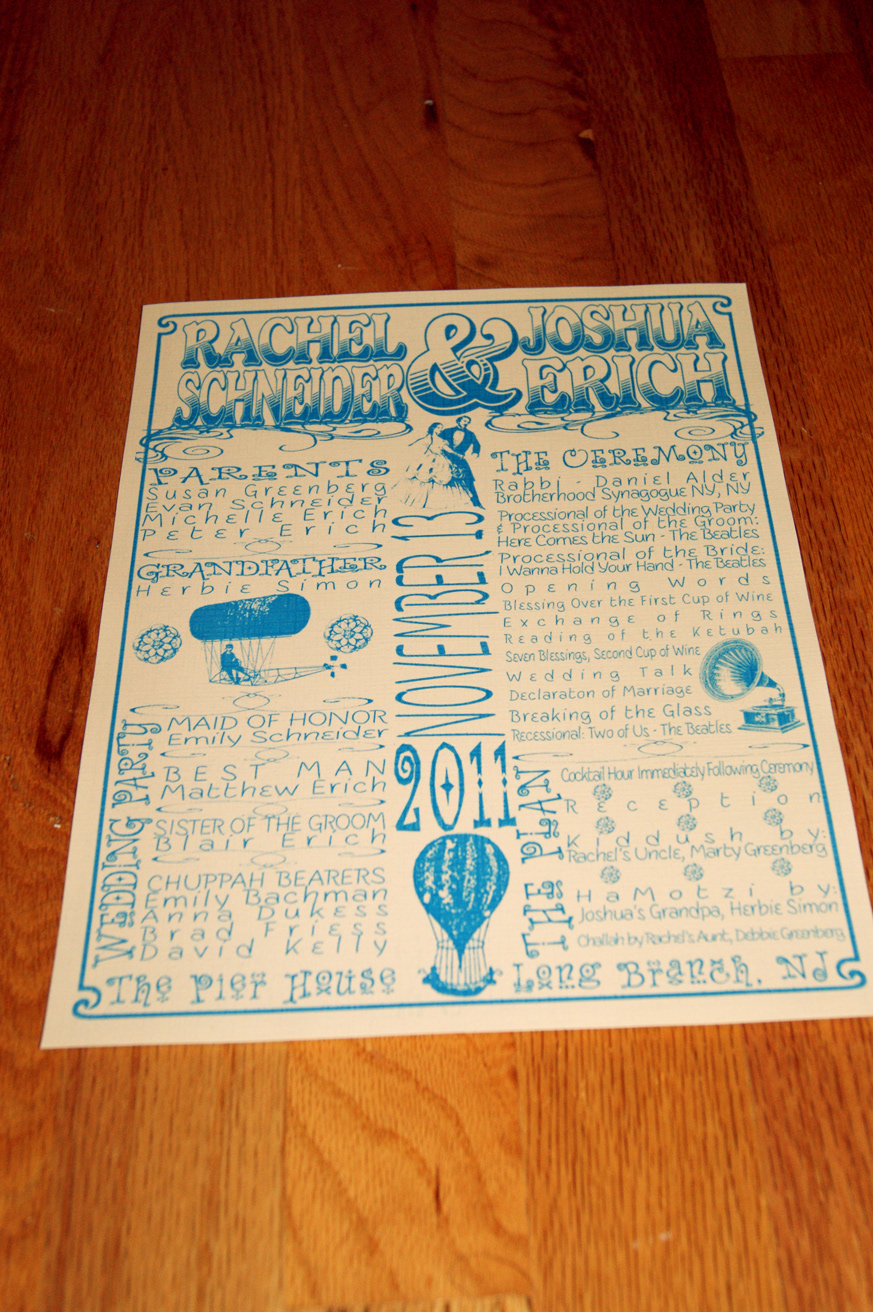 RACHEL
SCHNEIDER
&
JOSHUA
ERICH
PARENTS
Susan Greenberg
Evan Schneider
Michelle Erich
Peter Erich
GRANDFATHER
Herbie Simon
WEDDING PARTY
MAID OF HONOR
Emily Schneider
BEST MAN
Matthew Erich
SISTER OF THE GROOM
Blair Erich
CHUPPAH BEARERS
Emily Bachman
Anna Dukess
Brad Friess
David Kelly
NOVEMBER 13
2011
THE CEREMONY
Rabbi - Daniel Alder
Brotherhood Synagogue NY, NY
Processional of the Wedding Party
& Processional of the Groom:
Here Comes the Sun - The Beatles
Processional of the Bride:
I Wanna Hold Your Hand - The Beatles
Opening Words
Blessing Over the First Cup of Wine
Exchange of Rings
Reading of the Ketubah
Seven Blessings, Second Cup of Wine
Wedding Talk
Declaraton of Marriage
Breaking of the Glass
Recessional: Two of Us - The Beatles
THE PLAN
Cocktail Hour Immediately Following Ceremony
Reception
Kiddush by:
Rachel's Uncle, Marty Greenberg
HaMotzi by:
Joshua's Grandpa, Herbie Simon
Challah by Rachel's Aunt, Debbie Greenberg
The Pier House
Long Branch, NJ